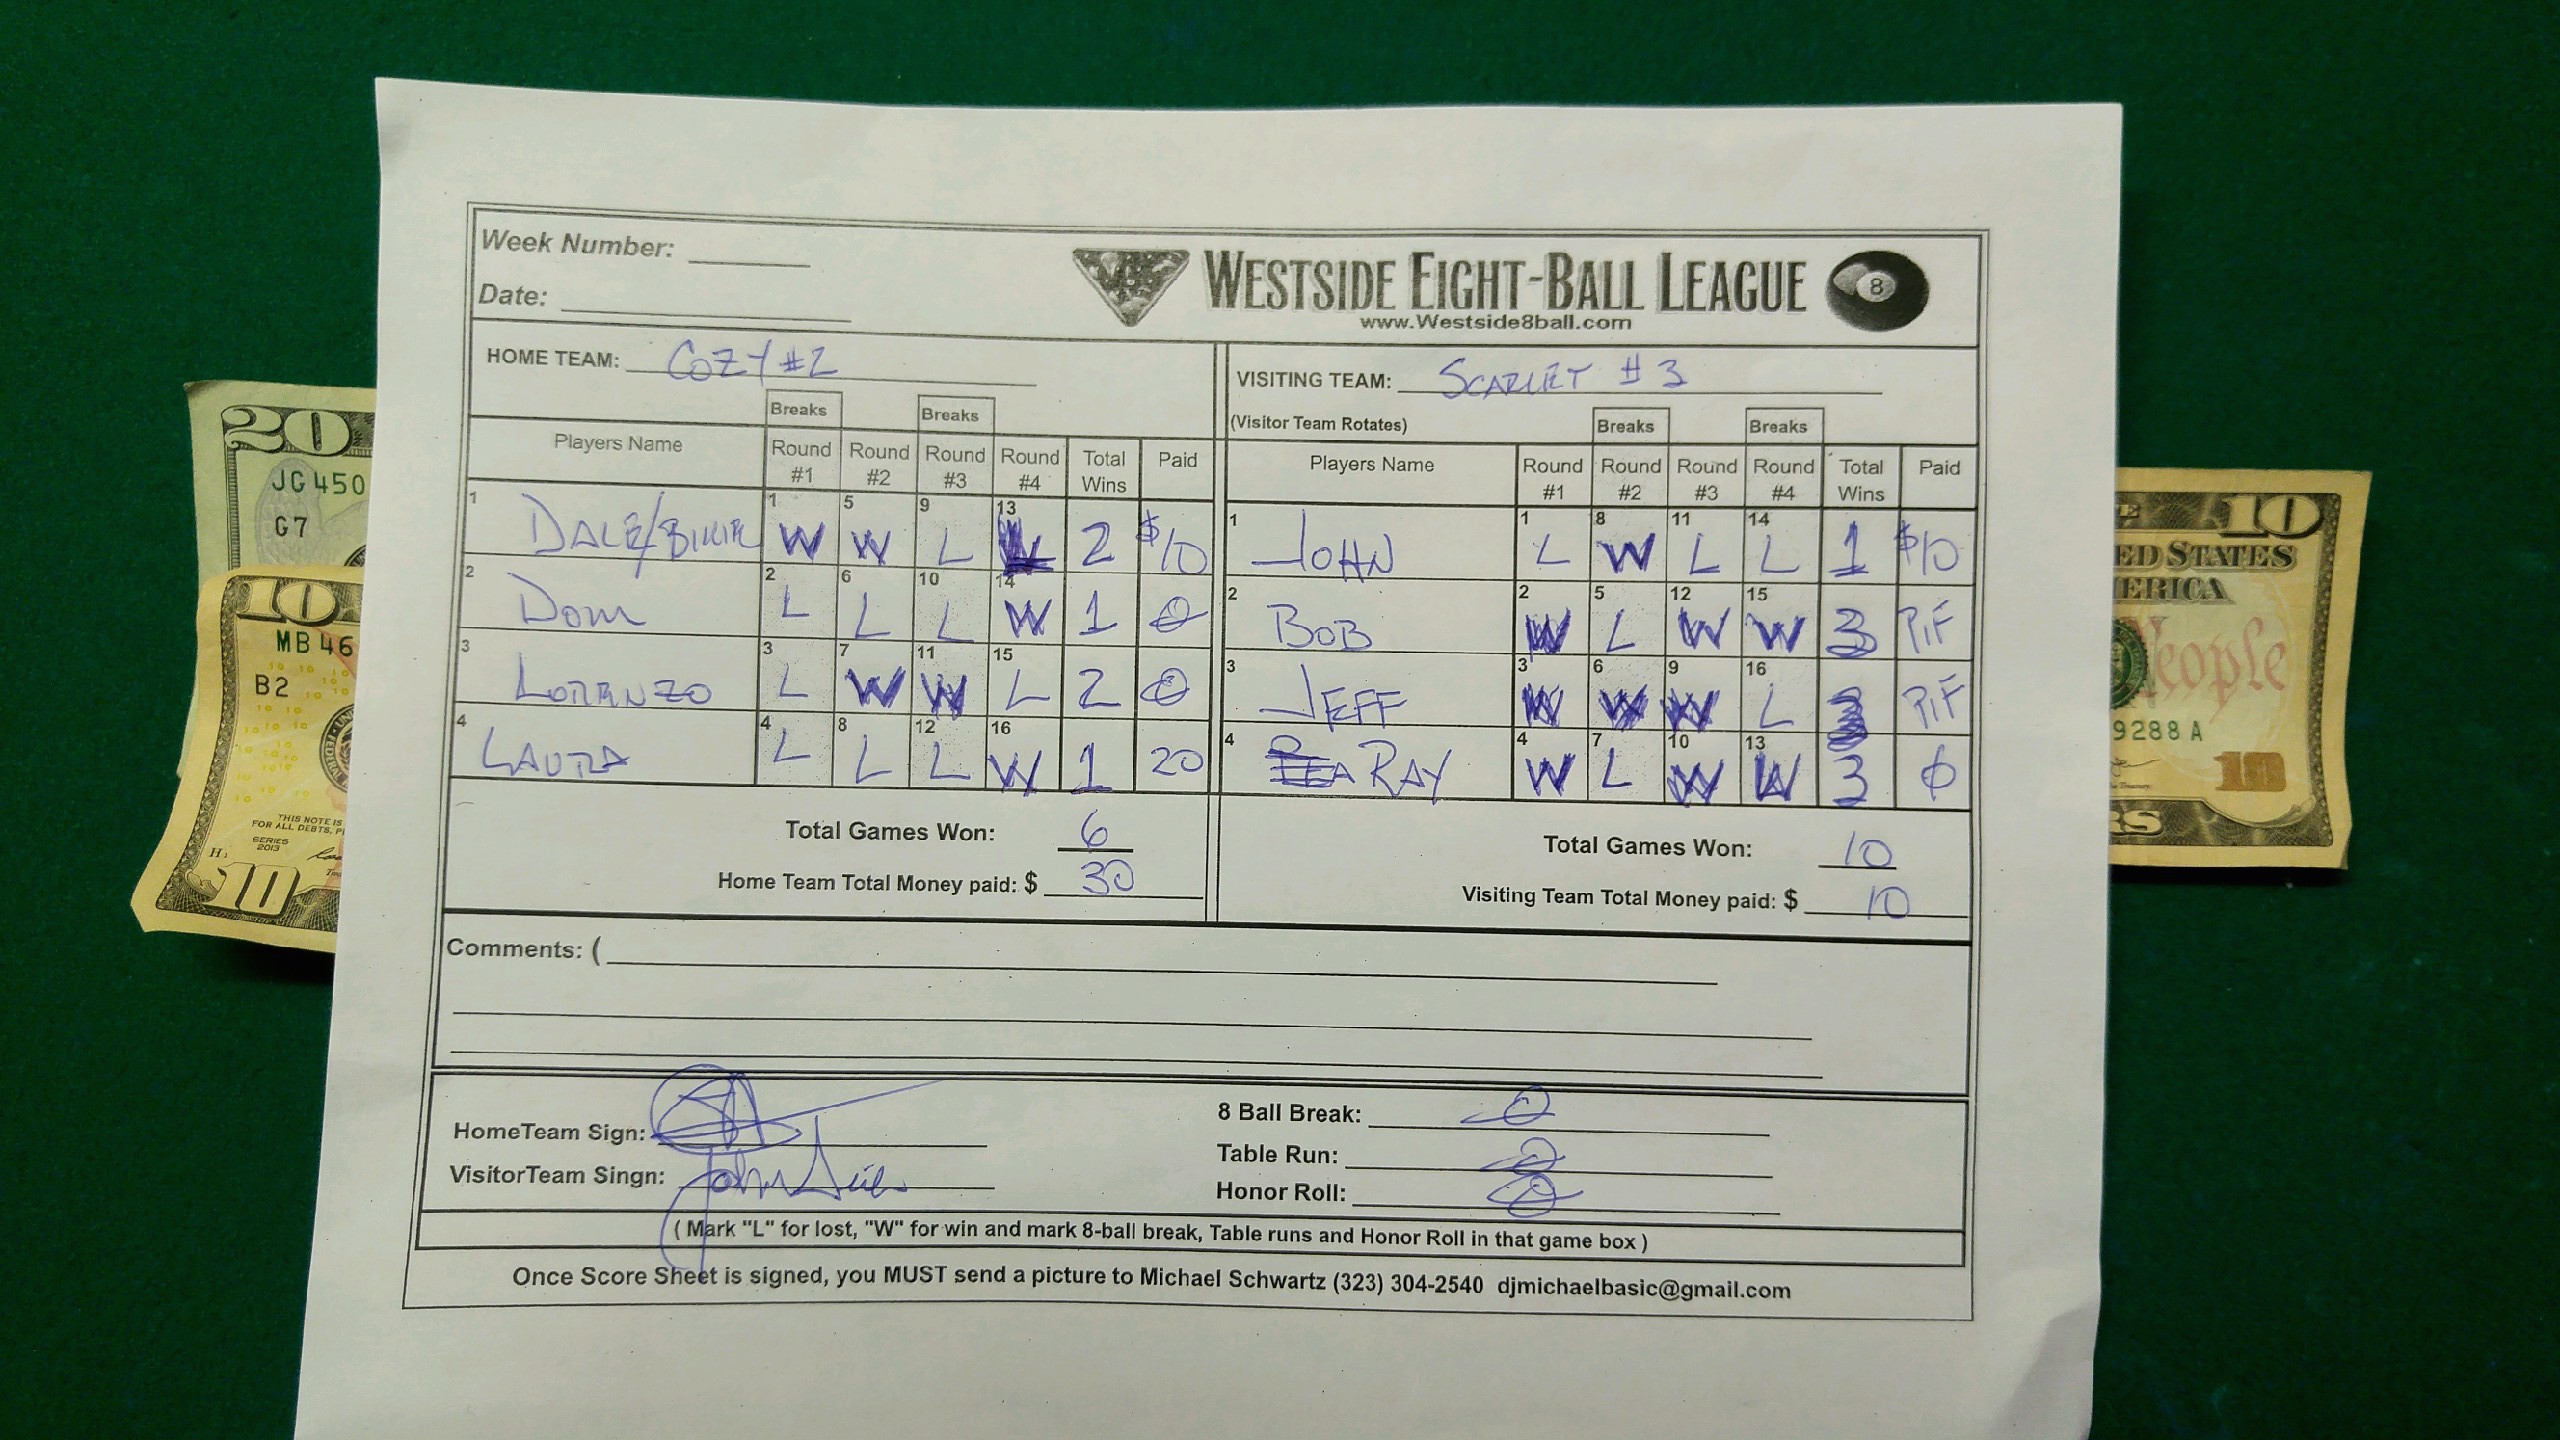 Week Number:
WESTSIDE EIGHT-BALL LEAGUE 8
Date:
www.Westside8ball.com
HOME TEAM: COZY #2
VISITING TEAM: SCARLET #3
Breaks Breaks
(Visitor Team Rotates) Breaks Breaks
Players Name Round #1 Round #2 Round #3 Round #4 Total Wins Paid
1 DALE/ 1 W 5 W 9 L 13 2 $10
2 DOM 2 L 6 L 10 L 14 W 1 0
3 LORENZO 3 L 7 W 11 W 15 L 2 0
4 LAURA 4 L 8 L 12 L 16 W 1 20
Total Games Won: 6
Home Team Total Money paid: $ 30
Players Name Round #1 Round #2 Round #3 Round #4 Total Wins Paid
1 JOHN 1 L 8 W 11 L 14 L 1 $10
2 BOB 2 W 5 L 12 W 15 W 3 PIF
3 JEFF 3 W 6 W 9 W 16 L 3 PIF
4 RAY 4 W 7 L 10 W 13 W 3 0
Total Games Won: 10
Visiting Team Total Money paid: $ 10
Comments: (
HomeTeam Sign:
VisitorTeam Singn: John
8 Ball Break: 0
Table Run: 0
Honor Roll: 0
( Mark "L" for lost, "W" for win and mark 8-ball break, Table runs and Honor Roll in that game box )
Once Score Sheet is signed, you MUST send a picture to Michael Schwartz (323) 304-2540 djmichaelbasic@gmail.com
20
JG 450
G7
10
MB 46
B2
THIS NOTE IS
FOR ALL DEBTS, P
SERIES
2013
10
10
ED STATES
ERICA
eople
9288 A
10
RS